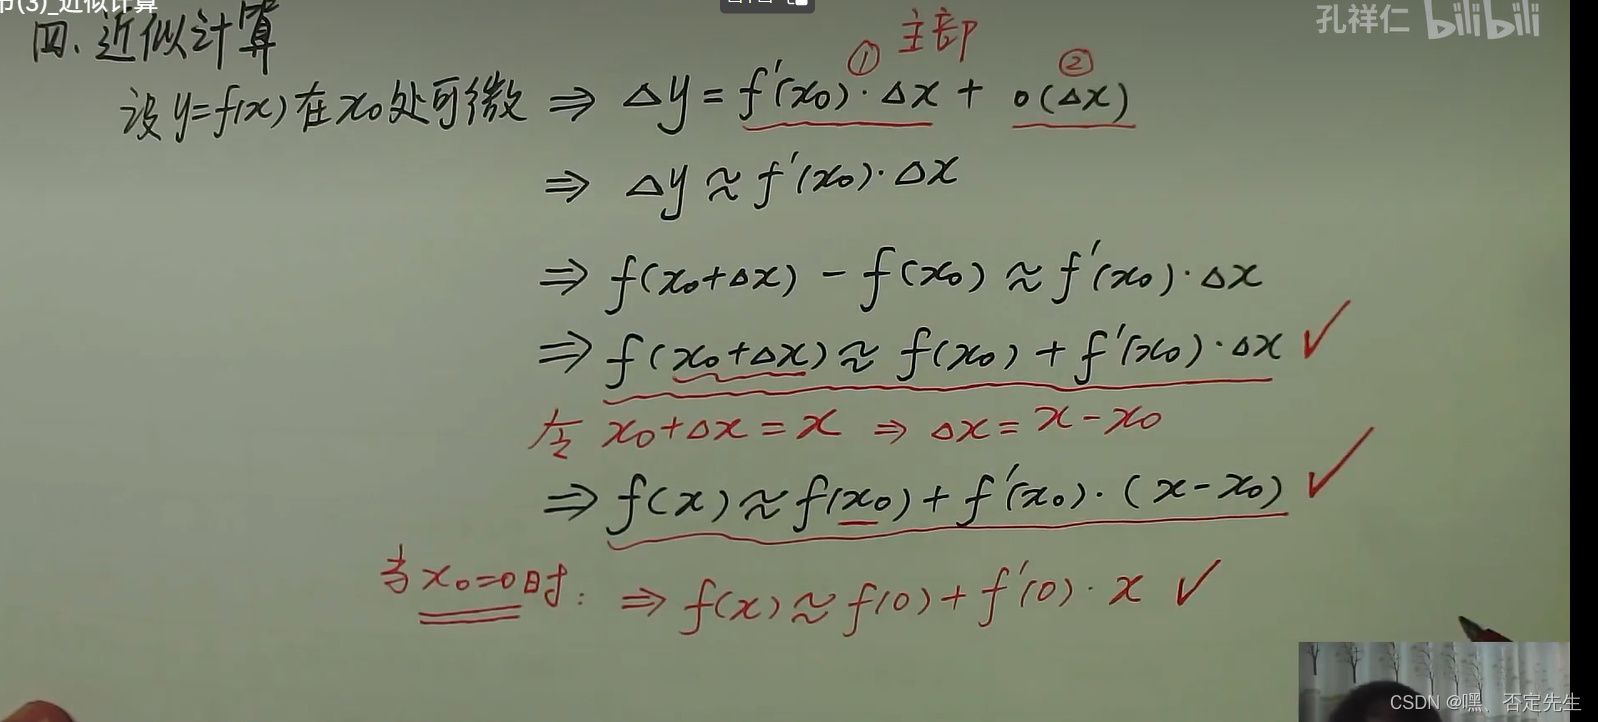 节(3)_近似计算
孔祥仁 bilibili
四、近似计算
① 主部 ②
设 y=f(x) 在 x₀ 处可微 ⇒ Δy = f′(x₀)·Δx + o(Δx)
⇒ Δy ≈ f′(x₀)·Δx
⇒ f(x₀+Δx) − f(x₀) ≈ f′(x₀)·Δx
⇒ f(x₀+Δx) ≈ f(x₀) + f′(x₀)·Δx ✓
令 x₀+Δx = x ⇒ Δx = x − x₀
⇒ f(x) ≈ f(x₀) + f′(x₀)·(x − x₀) ✓
当 x₀=0 时: ⇒ f(x) ≈ f(0) + f′(0)·x ✓
CSDN @嘿、否定先生